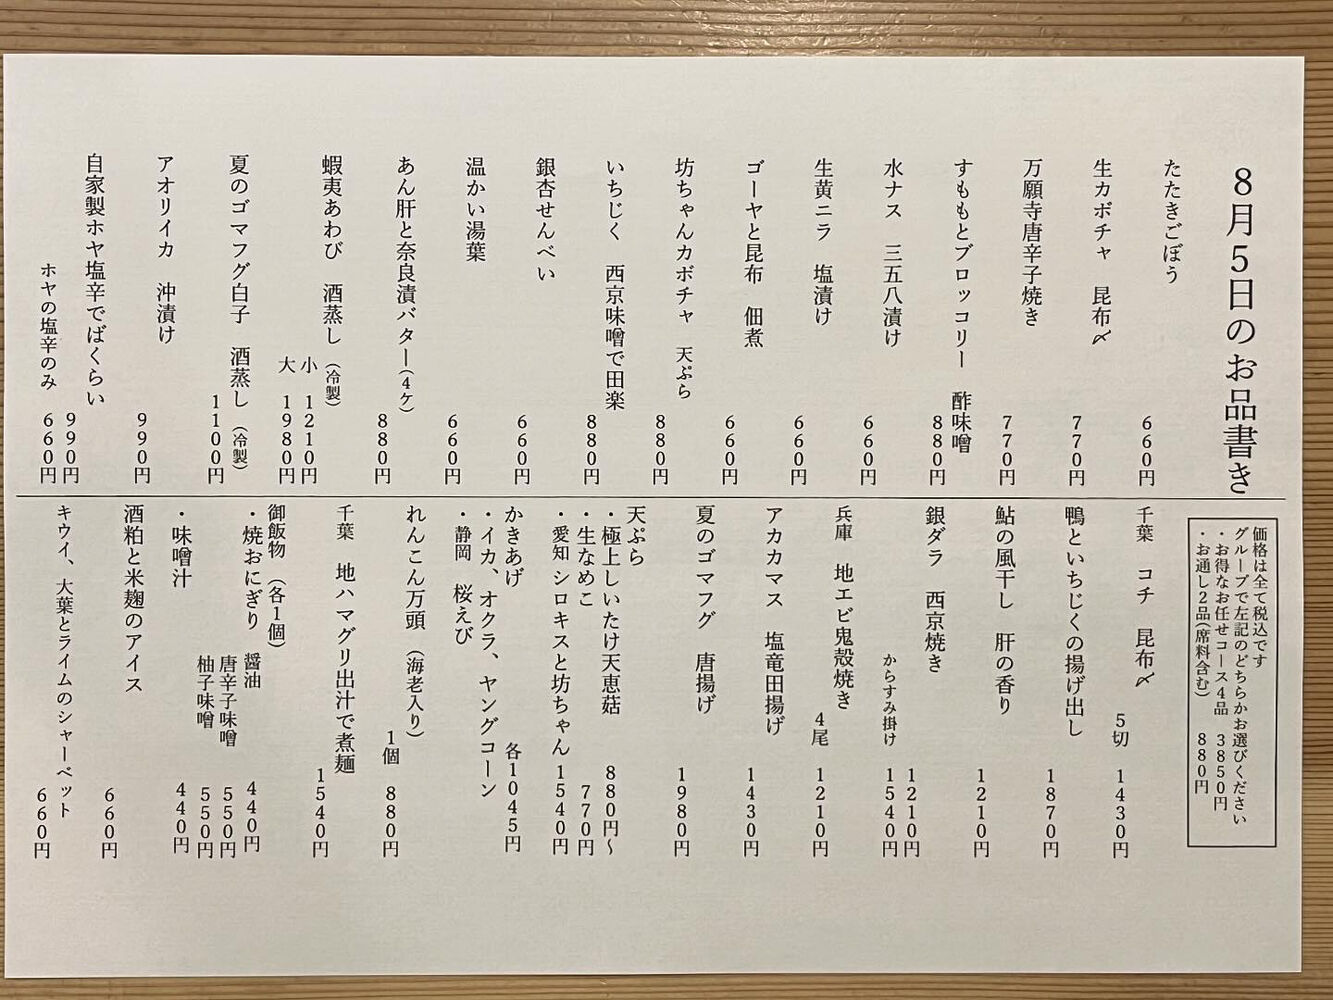 8月5日のお品書き
たたきごぼう
660円
生カボチャ 昆布〆
770円
万願寺唐辛子焼き
770円
すももとブロッコリー 酢味噌
880円
水ナス 三五八漬け
660円
生黄ニラ 塩漬け
660円
ゴーヤと昆布 佃煮
660円
坊ちゃんカボチャ 天ぷら
880円
いちじく 西京味噌で田楽
880円
銀杏せんべい
660円
温かい湯葉
660円
あん肝と奈良漬バター(4ケ)
880円
蝦夷あわび 酒蒸し(冷製)
小 1210円
大 1980円
夏のゴマフグ白子 酒蒸し(冷製)
1100円
アオリイカ 沖漬け
990円
自家製ホヤ塩辛でばくらい
990円
ホヤの塩辛のみ 660円
価格は全て税込です
グループで左記のどちらかお選びください
・お得なお任せコース4品 3850円
・お通し2品(席料含む) 880円
千葉 コチ 昆布〆
5切 1430円
鴨といちじくの揚げ出し
1870円
鮎の風干し 肝の香り
1210円
銀ダラ 西京焼き
1210円
からすみ掛け 1540円
兵庫 地エビ鬼殻焼き
4尾 1210円
アカカマス 塩竜田揚げ
1430円
夏のゴマフグ 唐揚げ
1980円
天ぷら
・極上しいたけ天恵菇 880円〜
・生なめこ 770円
・愛知 シロキスと坊ちゃん 1540円
かきあげ 各1045円
・イカ、オクラ、ヤングコーン
・静岡 桜えび
れんこん万頭(海老入り)
1個 880円
千葉 地ハマグリ出汁で煮麺
1540円
御飯物(各1個)
・焼おにぎり 醤油 440円
唐辛子味噌 550円
柚子味噌 550円
・味噌汁 440円
酒粕と米麹のアイス
660円
キウイ、大葉とライムのシャーベット
660円